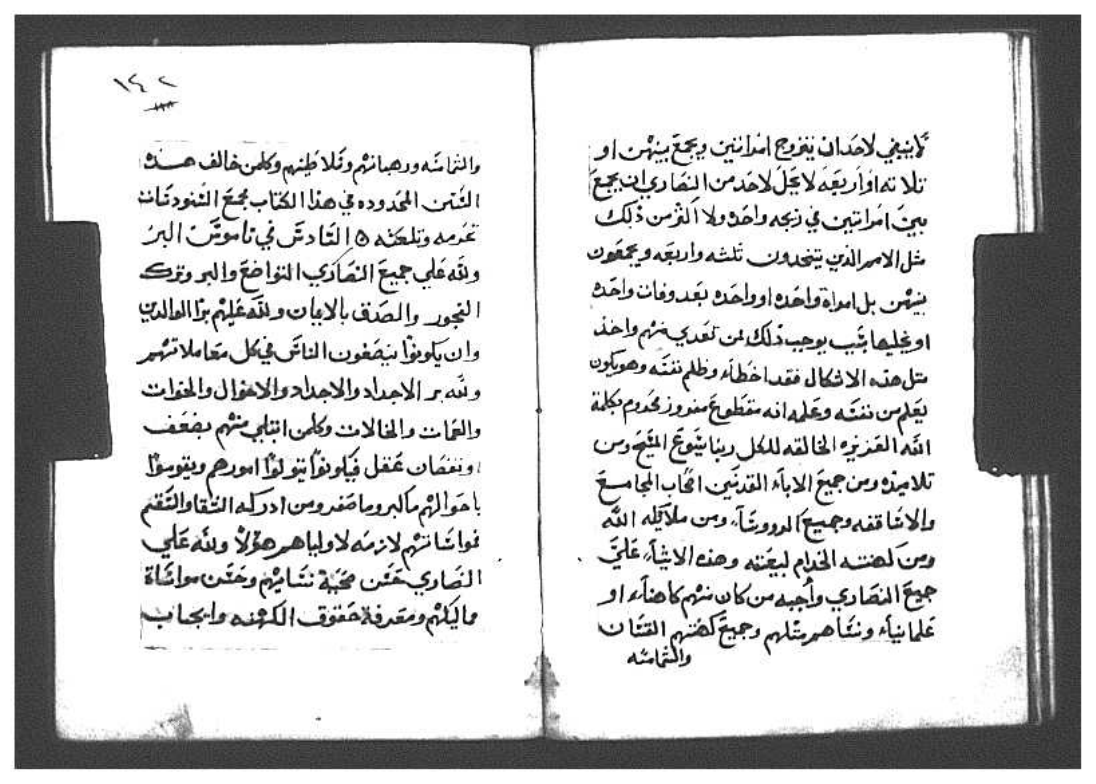 لا ينبغي لاحدان يتزوج امراتين ويجمع بينهن او
تلاته او اربعه لا يحل لاحد من النصاري ان يجمع
بين امراتين في زيجه واحده ولا اكثر من ذلك
مثل الامم الذين يتخدون تلته واربعه ويجمعون
بينهن بل امراة واحده او واحده بعد وفات واحده
او عليها سبب يوجب ذلك فمن تعدي منهم واخذ
متل هذه الاشكال فقد اخطاء وظلم نفسه وهو يكون
يعلم من نفسه وعلمه انه مقطوع مفروز محروم بكلمة
الله العزيزه الخالقه للكل ربنا يسوع المسيح ومن
تلاميذه ومن جميع الاباء القديسين اصحاب المجامع
والاساقفه وجميع الرووسآء ومن ملايكه الله
ومن كهنته الخدام لبيعته وهذه الاشيآء علي
جميع النصاري واجبه من كان منهم كاهنآء او
علمانيآء ونسآهم مثلهم وجميع كهنتهم القسان
والشمامسه
١٤٢
والشمامسه ورهبانهم وكلمن خالف هذه
السنن المحدوده في هذا الكتاب فمجمع السنودسات
تحرمه وتلعنه ه السادس في ناموس البر
ولله علي جميع النصاري التواضع والبر وترك
الفجور والصدق بالايمان ولله عليهم بر الوالدين
وان يكونوا ينصفون الناس في كل معاملاتهم
ولله بر الاجداد والاجداد والاخوال والخوات
والعمات والخالات وكلمن ابتلي منهم بضعف
او نقصان عقل فيكونوا يتولوا امورهم ويقوموا
باحوالهم ما كبر وما صغر ومن ادركه الشقا والسقم
فمواساتهم لازمه لاوليا هم هؤلا ولله علي
النصاري حسن صحبة نسايهم وحسن مواساة
مماليكهم ومعرفة حقوق الكهنه وايجاب